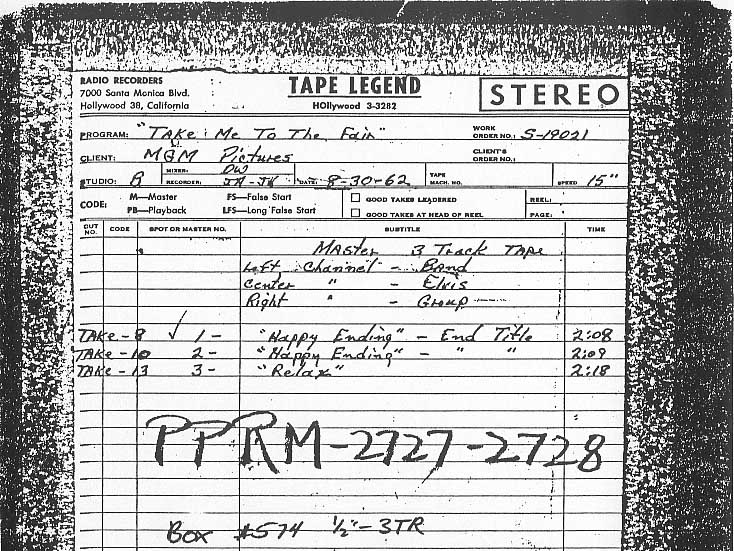 RADIO RECORDERS
7000 Santa Monica Blvd.
Hollywood 38, California
TAPE LEGEND
HOllywood 3-3282
STEREO
PROGRAM: "Take Me To The Fair" WORK ORDER NO.: S-19021
CLIENT: MGM Pictures CLIENT'S ORDER NO.:
STUDIO: B MIXER: DW RECORDER: DATE: 8-30-62 TAPE MACH. NO. SPEED 15"
CODE: M—Master FS—False Start GOOD TAKES LEADERED REEL:
PB—Playback LFS—Long False Start GOOD TAKES AT HEAD OF REEL PAGE:
CUT NO. CODE SPOT OR MASTER NO. SUBTITLE TIME
MASTER 3 Track TAPE
Left Channel - BAND
Center " - Elvis
Right " - Group
TAKE - 8 √ 1 - "Happy Ending" - End Title 2:08
TAKE - 10 2 - "Happy Ending" - " " 2:09
TAKE - 13 3 - "Relax" 2:18
PPRM-2727-2728
Box #574 ½"-3TR